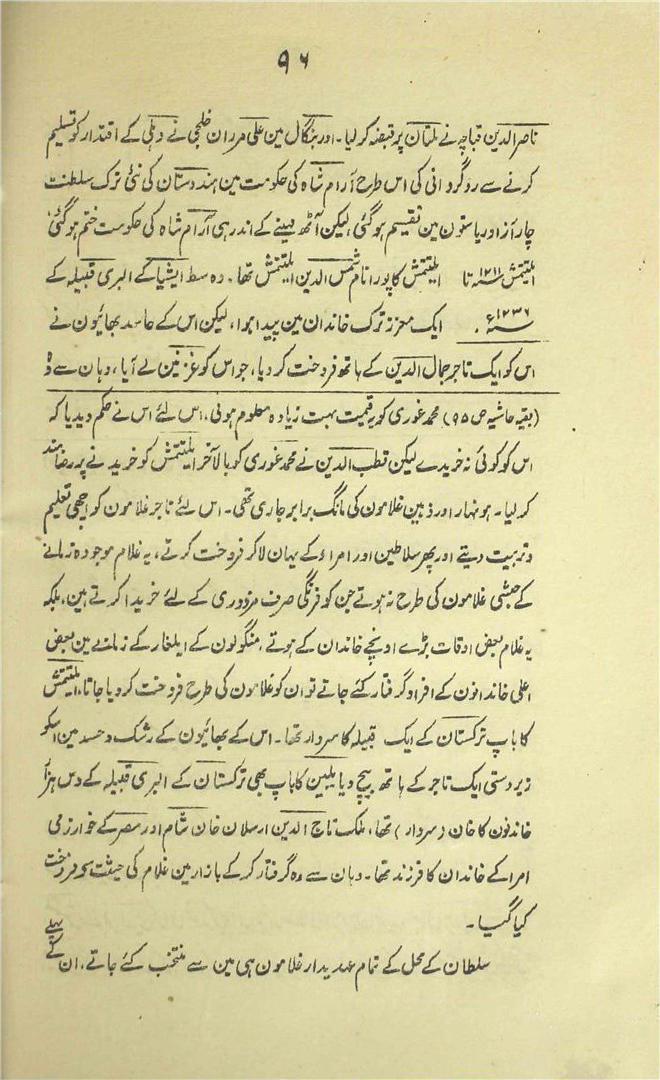 ۹۶
ناصرالدین قباچہ نے ملتان پر قبضہ کر لیا۔ اور بنگال مین علی مردان خلجی نے دہلی کے اقتدار کو تسلیم
کرنے سے روگردانی کی اس طرح آرام شاہ کی حکومت مین ہندوستان کی نئی ترک سلطنت
چار آزاد ریاستون مین تقسیم ہو گئی، لیکن آٹھ مہینے کے اندر ہی آرام شاہ کی حکومت ختم ہو گئی،
ایلتتمش ۱۲۱۱ء تا ایلتتمش کا پورا نام شمس الدین ایلتتمش تھا۔ وہ وسط ایشیا کے البری قبیلہ کے
۱۲۳۶ء۔ ایک معزز ترک خاندان مین پیدا ہوا، لیکن اس کے حاسد بھائیون نے
اس کو ایک تاجر جمال الدین کے ہاتھ فروخت کر دیا، جو اس کو غزنین لے آیا، وہان سے وہ
(بقیہ حاشیہ ص ۹۵) محمد غوری کو یہ قیمت بہت زیادہ معلوم ہوئی، اس لئے اس نے حکم دیدیا کہ
اس کو کوئی نہ خریدے لیکن قطب الدین نے محمد غوری کو بالآخر ایلتتمش کو خریدنے پر رضامند
کر لیا۔ ہونہار اور ذہین غلامون کی مانگ برابر جاری تھی۔ اس لئے تاجر غلامون کو اچھی تعلیم
و تربیت دیتے اور پھر سلاطین اور امراء کے یہان لا کر فروخت کرتے، یہ غلام موجودہ زمانے
کے حبشی غلامون کی طرح نہ ہوتے جن کو فرنگی صرف مزدوری کے لئے خریدا کرتے ہین، بلکہ
یہ غلام بعض اوقات بڑے اونچے خاندان کے ہوتے، منگولون کے ایلغار کے زمانے مین بعض
اعلی خاندانون کے افراد گرفتار کئے جاتے تو ان کو غلامون کی طرح فروخت کر دیا جاتا، ایلتتمش
کا باپ ترکستان کے ایک قبیلہ کا سردار تھا۔ اس کے بھائیون کے رشک و حسد مین اسکو
زبردستی ایک تاجر کے ہاتھ بیچ دیا بلبن کا باپ بھی ترکستان کے البری قبیلہ کے دس ہزار
خاندنون کا خان (سردار) تھا، ملک تاج الدین ارسلان خان شام اور مصر کے خوارزمی
امرا کے خاندان کا فرزند تھا۔ وہان سے وہ گرفتار کرکے بازار مین غلام کی حیثیت سے فروخت
کیا گیا۔
سلطان کے محل کے تمام عہدیدار غلامون ہی مین سے منتخب کئے جاتے، ان کے پہلے